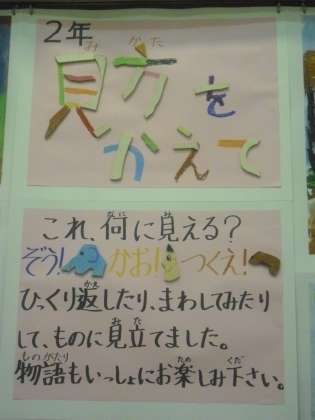 ２年
見方を
かえて
これ、何に見える？
ぞう！かお！つくえ！
ひっくり返したり、まわしてみたり
して、ものに見立てました。
物語もいっしょにお楽しみ下さい。